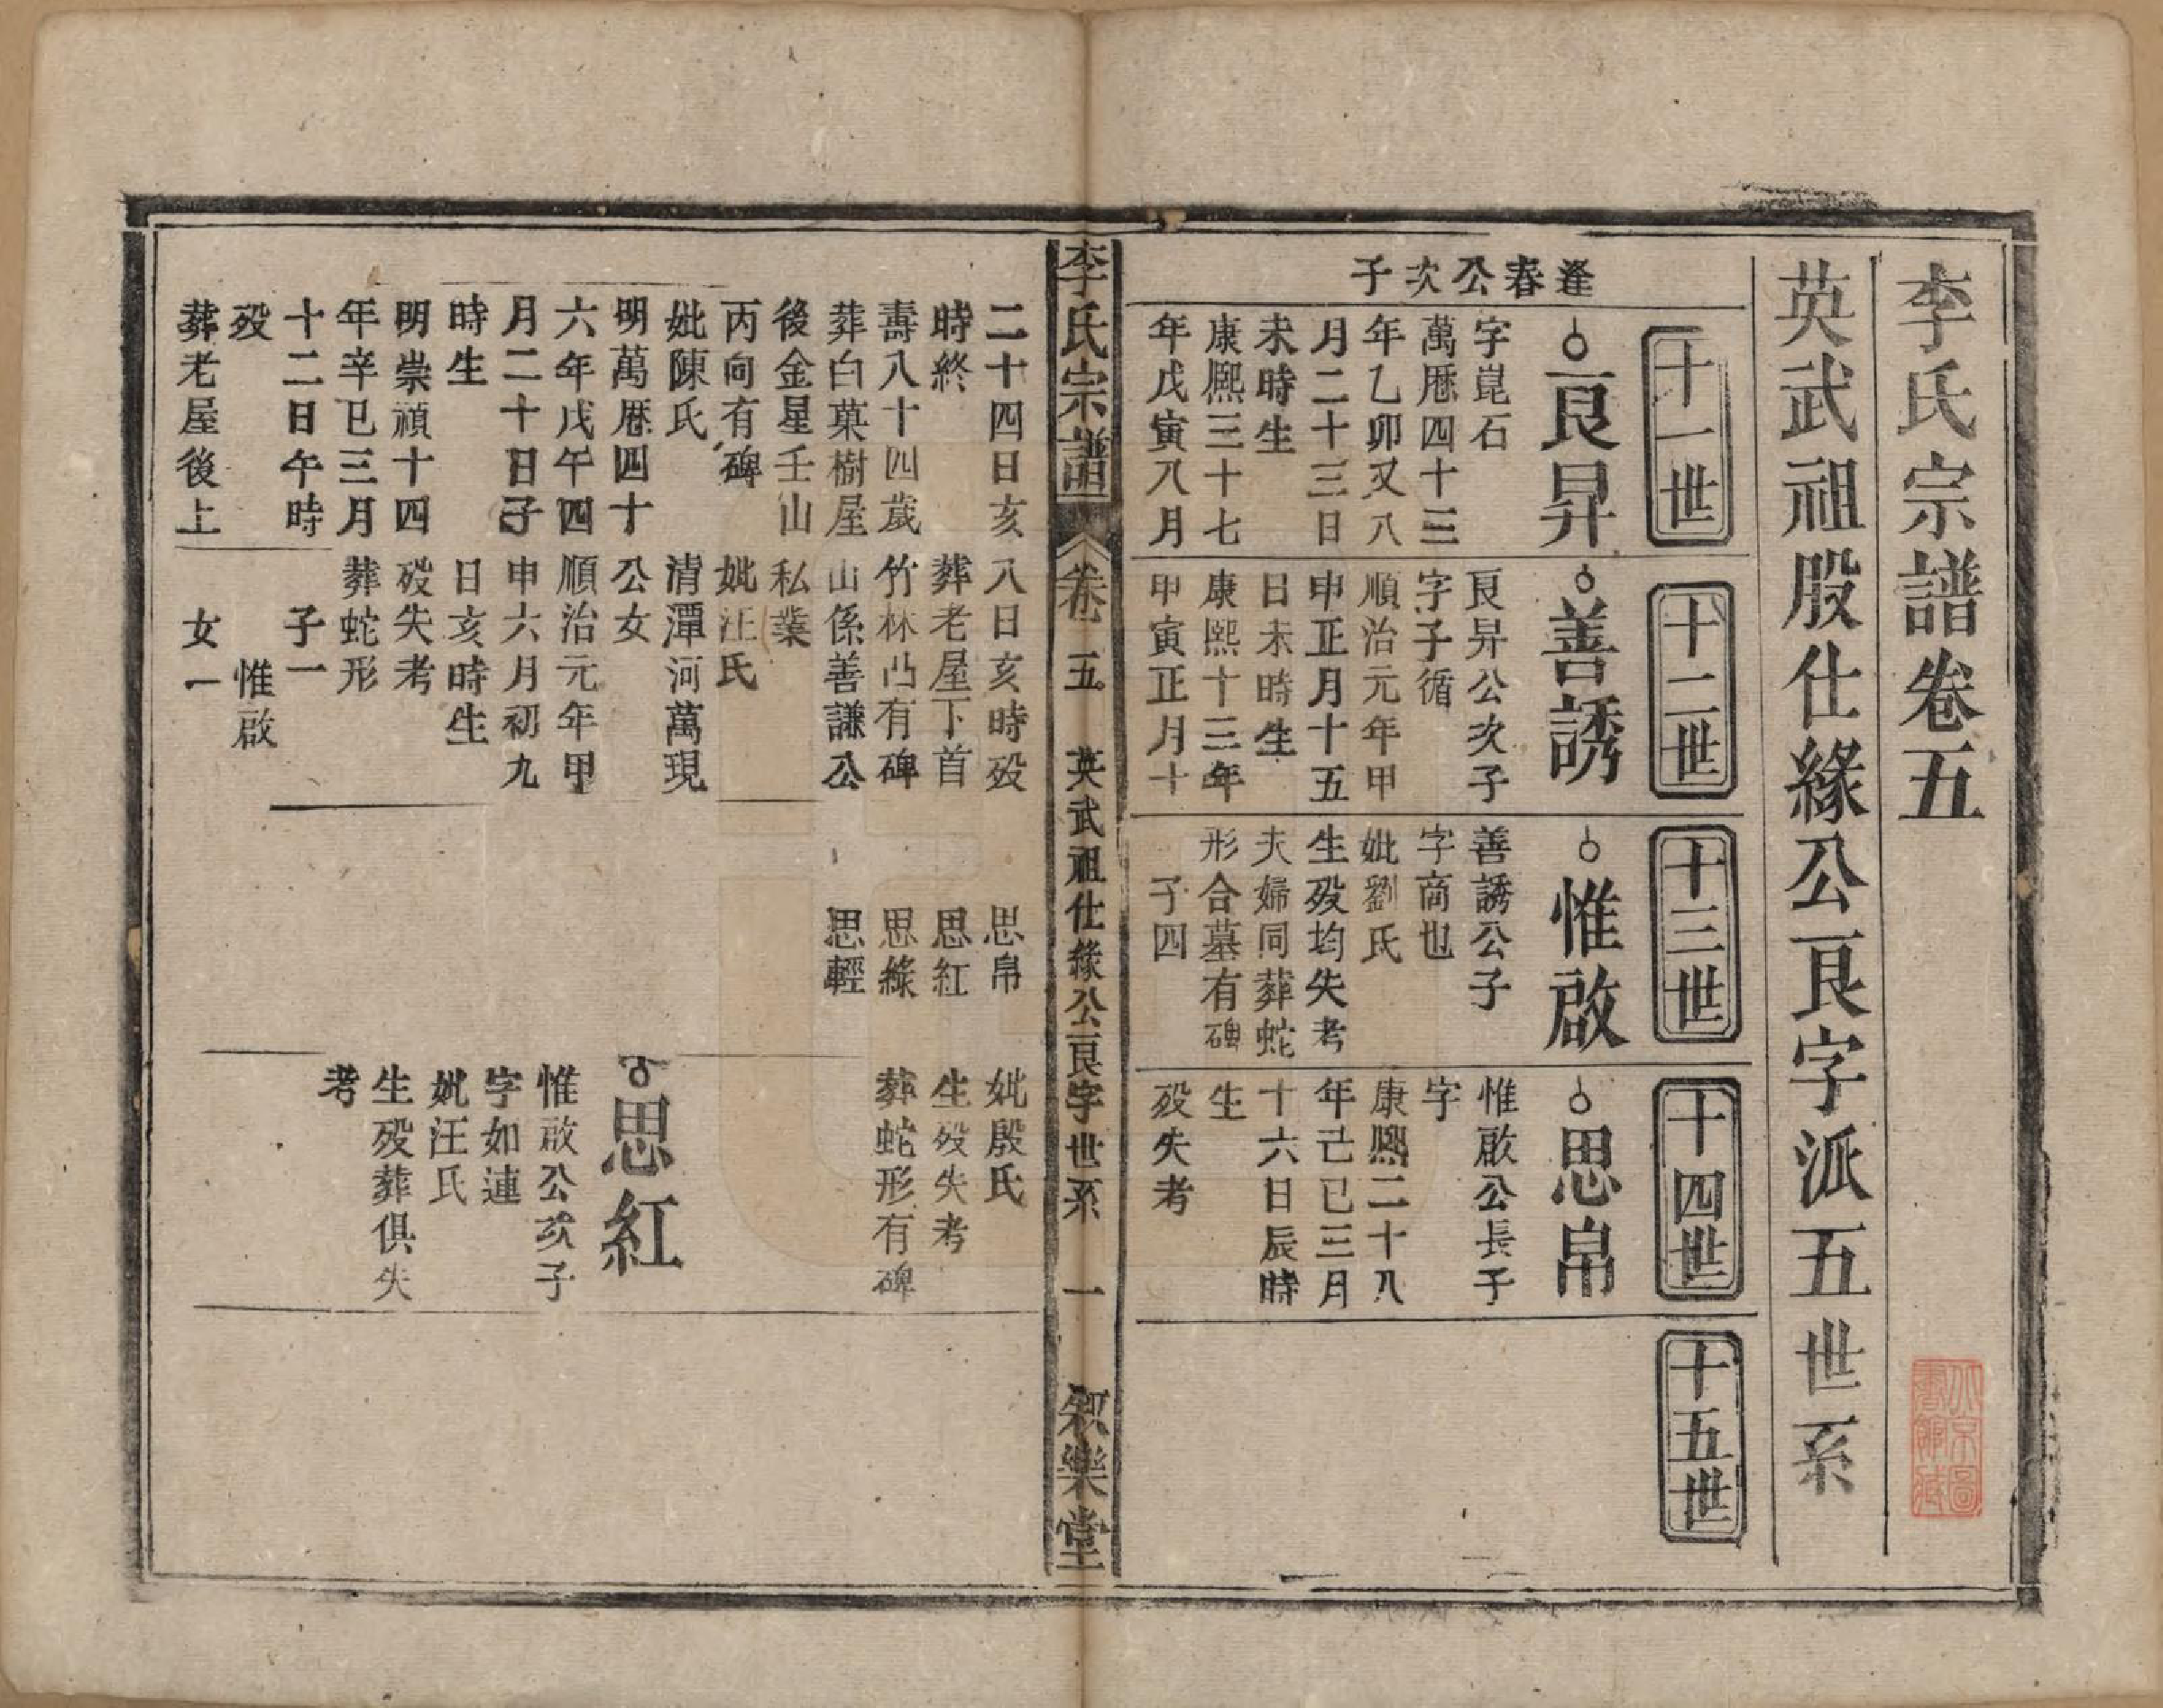 李氏宗譜卷五
英武祖股仕緣公艮字派五世系
十一世
逢春公次子
艮昇
字崑石
萬曆四十三
年乙卯又八
月二十三日
未時生
康熙三十七
年戊寅八月
十二世
善誘
艮昇公次子
字子循
順治元年甲
申正月十五
日未時生
康熙十三年
甲寅正月十
十三世
惟啟
善誘公子
字商也
妣劉氏
生歿均失考
夫婦同葬蛇
形合墓有碑
子四
十四世
思帛
惟啟公長子
字
康熙二十八
年己巳三月
十六日辰時
生
歿失考
十五世
李氏宗譜
卷五
英武祖仕緣公艮字世系
一
敘樂堂
二十四日亥
時終
壽八十四歲
葬白菓樹屋
後金星壬山
丙向有碑
妣陳氏
明萬曆四十
六年戊午四
月二十日子
時生
明崇禎十四
年辛巳三月
十二日午時
歿
葬老屋後上
八日亥時歿
葬老屋下首
竹林凸有碑
山係善謙公
私業
妣汪氏
清潭河萬現
公女
順治元年甲
申六月初九
日亥時生
歿失考
葬蛇形
子一
惟啟
女一
思帛
思紅
思綠
思輕
妣殷氏
生歿失考
葬蛇形有碑
思紅
惟啟公次子
字如連
妣汪氏
生歿葬俱失
考
北京圖
書館藏